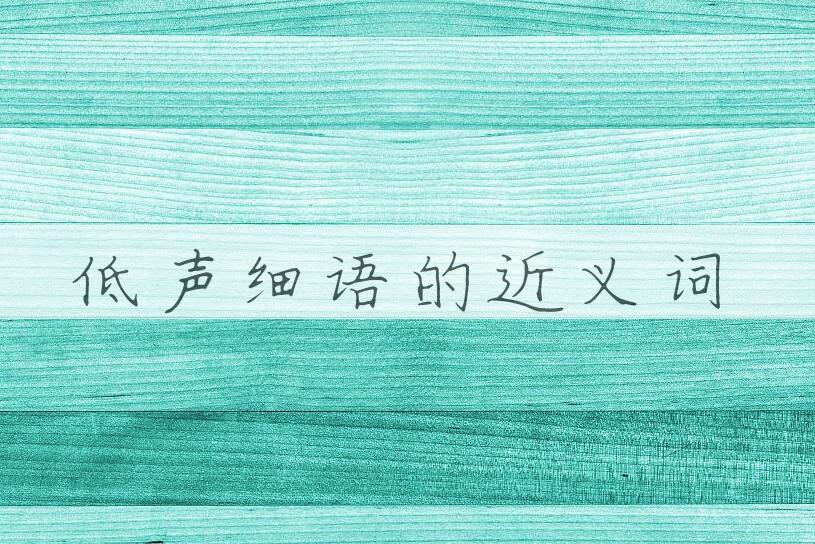 低声细语的近义词